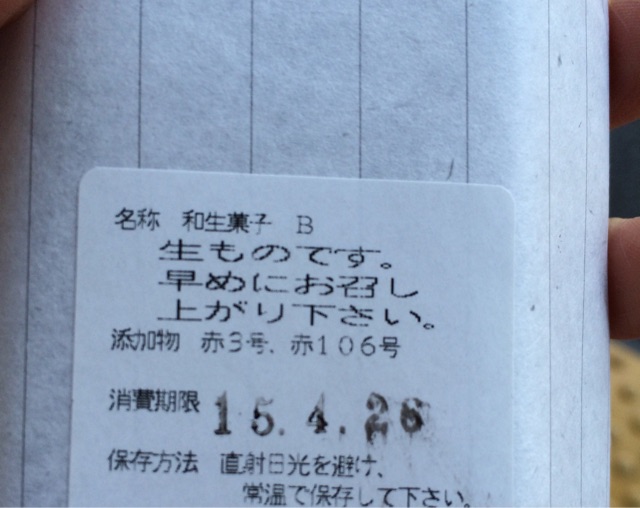 名称 和生菓子 B
生ものです。
早めにお召し
上がり下さい。
添加物 赤3号、赤106号
消費期限 15.4.26
保存方法 直射日光を避け、
常温で保存して下さい。